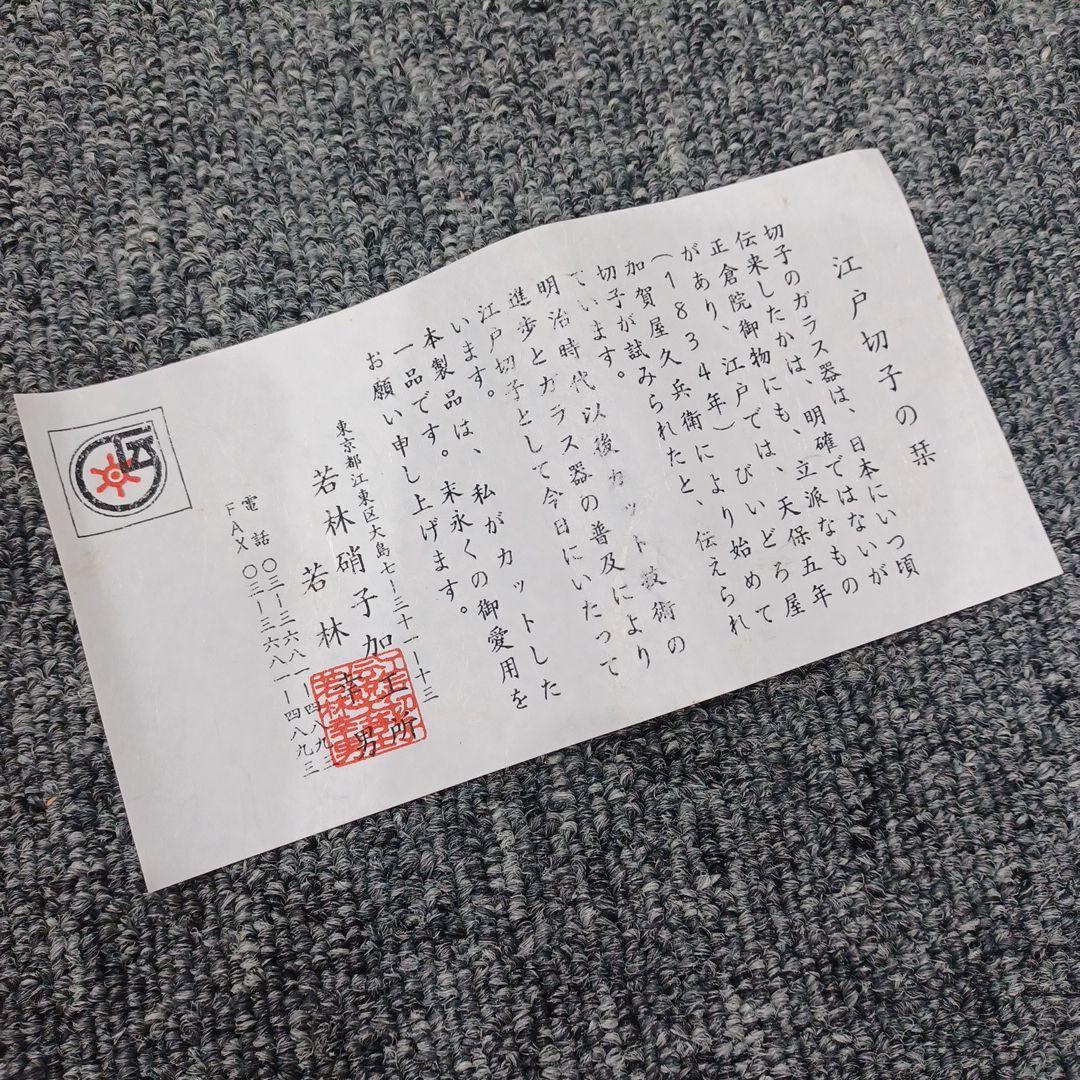 江戸切子の栞
切子のガラス器は、日本にいつ頃
伝来したかは、明確ではないが
正倉院御物にも、立派なもの
があり、江戸では、天保五年
（1834年）びいどろ屋
加賀屋久兵衛により始めて
切子が試みられたと、伝えられ
ています。
明治時代以後カット技術の
進歩とガラス器の普及により
江戸切子として今日にいたって
います。
本製品は、私がカットした
一品です。末永くの御愛用を
お願い申し上げます。
東京都江東区大島七ー三十一ー十三
若林硝子加工所
若林 男
電話 〇三ー三六八一ー四八九三
FAX 〇三ー三六八一ー四八九三